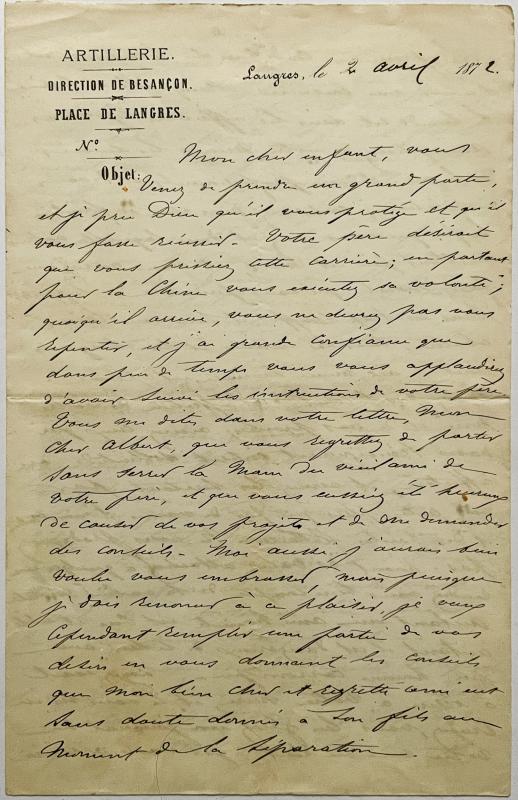 ARTILLERIE.
DIRECTION DE BESANÇON.
PLACE DE LANGRES.
N°
Objet:
Langres, le 2 avril 1872.
Mon cher enfant, vous
Venez de prendre un grand parti,
et je prie Dieu qu'il vous protège et qu'il
vous fasse réussir. Votre père désirait
que vous prissiez cette carrière; en partant
pour la Chine vous exécutez sa volonté;
quoiqu'il arrive, vous ne devez pas vous
repentir, et j'ai grande confiance que
dans peu de temps vous vous applaudirez
d'avoir suivi les instructions de votre père.
Vous me dites, dans votre lettre, Mon
cher Albert, que vous regrettez de partir
sans serrer la main du vieil ami de
votre père, et que vous eussiez été heureux
de causer de vos projets et de me demander
des conseils - Moi aussi j'aurais bien
voulu vous embrasser, mais puisque
je dois renoncer à ce plaisir, je veux
cependant remplir une partie de vos
désirs en vous donnant les conseils
que mon bien cher et regretté ami eut
sans doute donnés à son fils au
moment de la séparation.